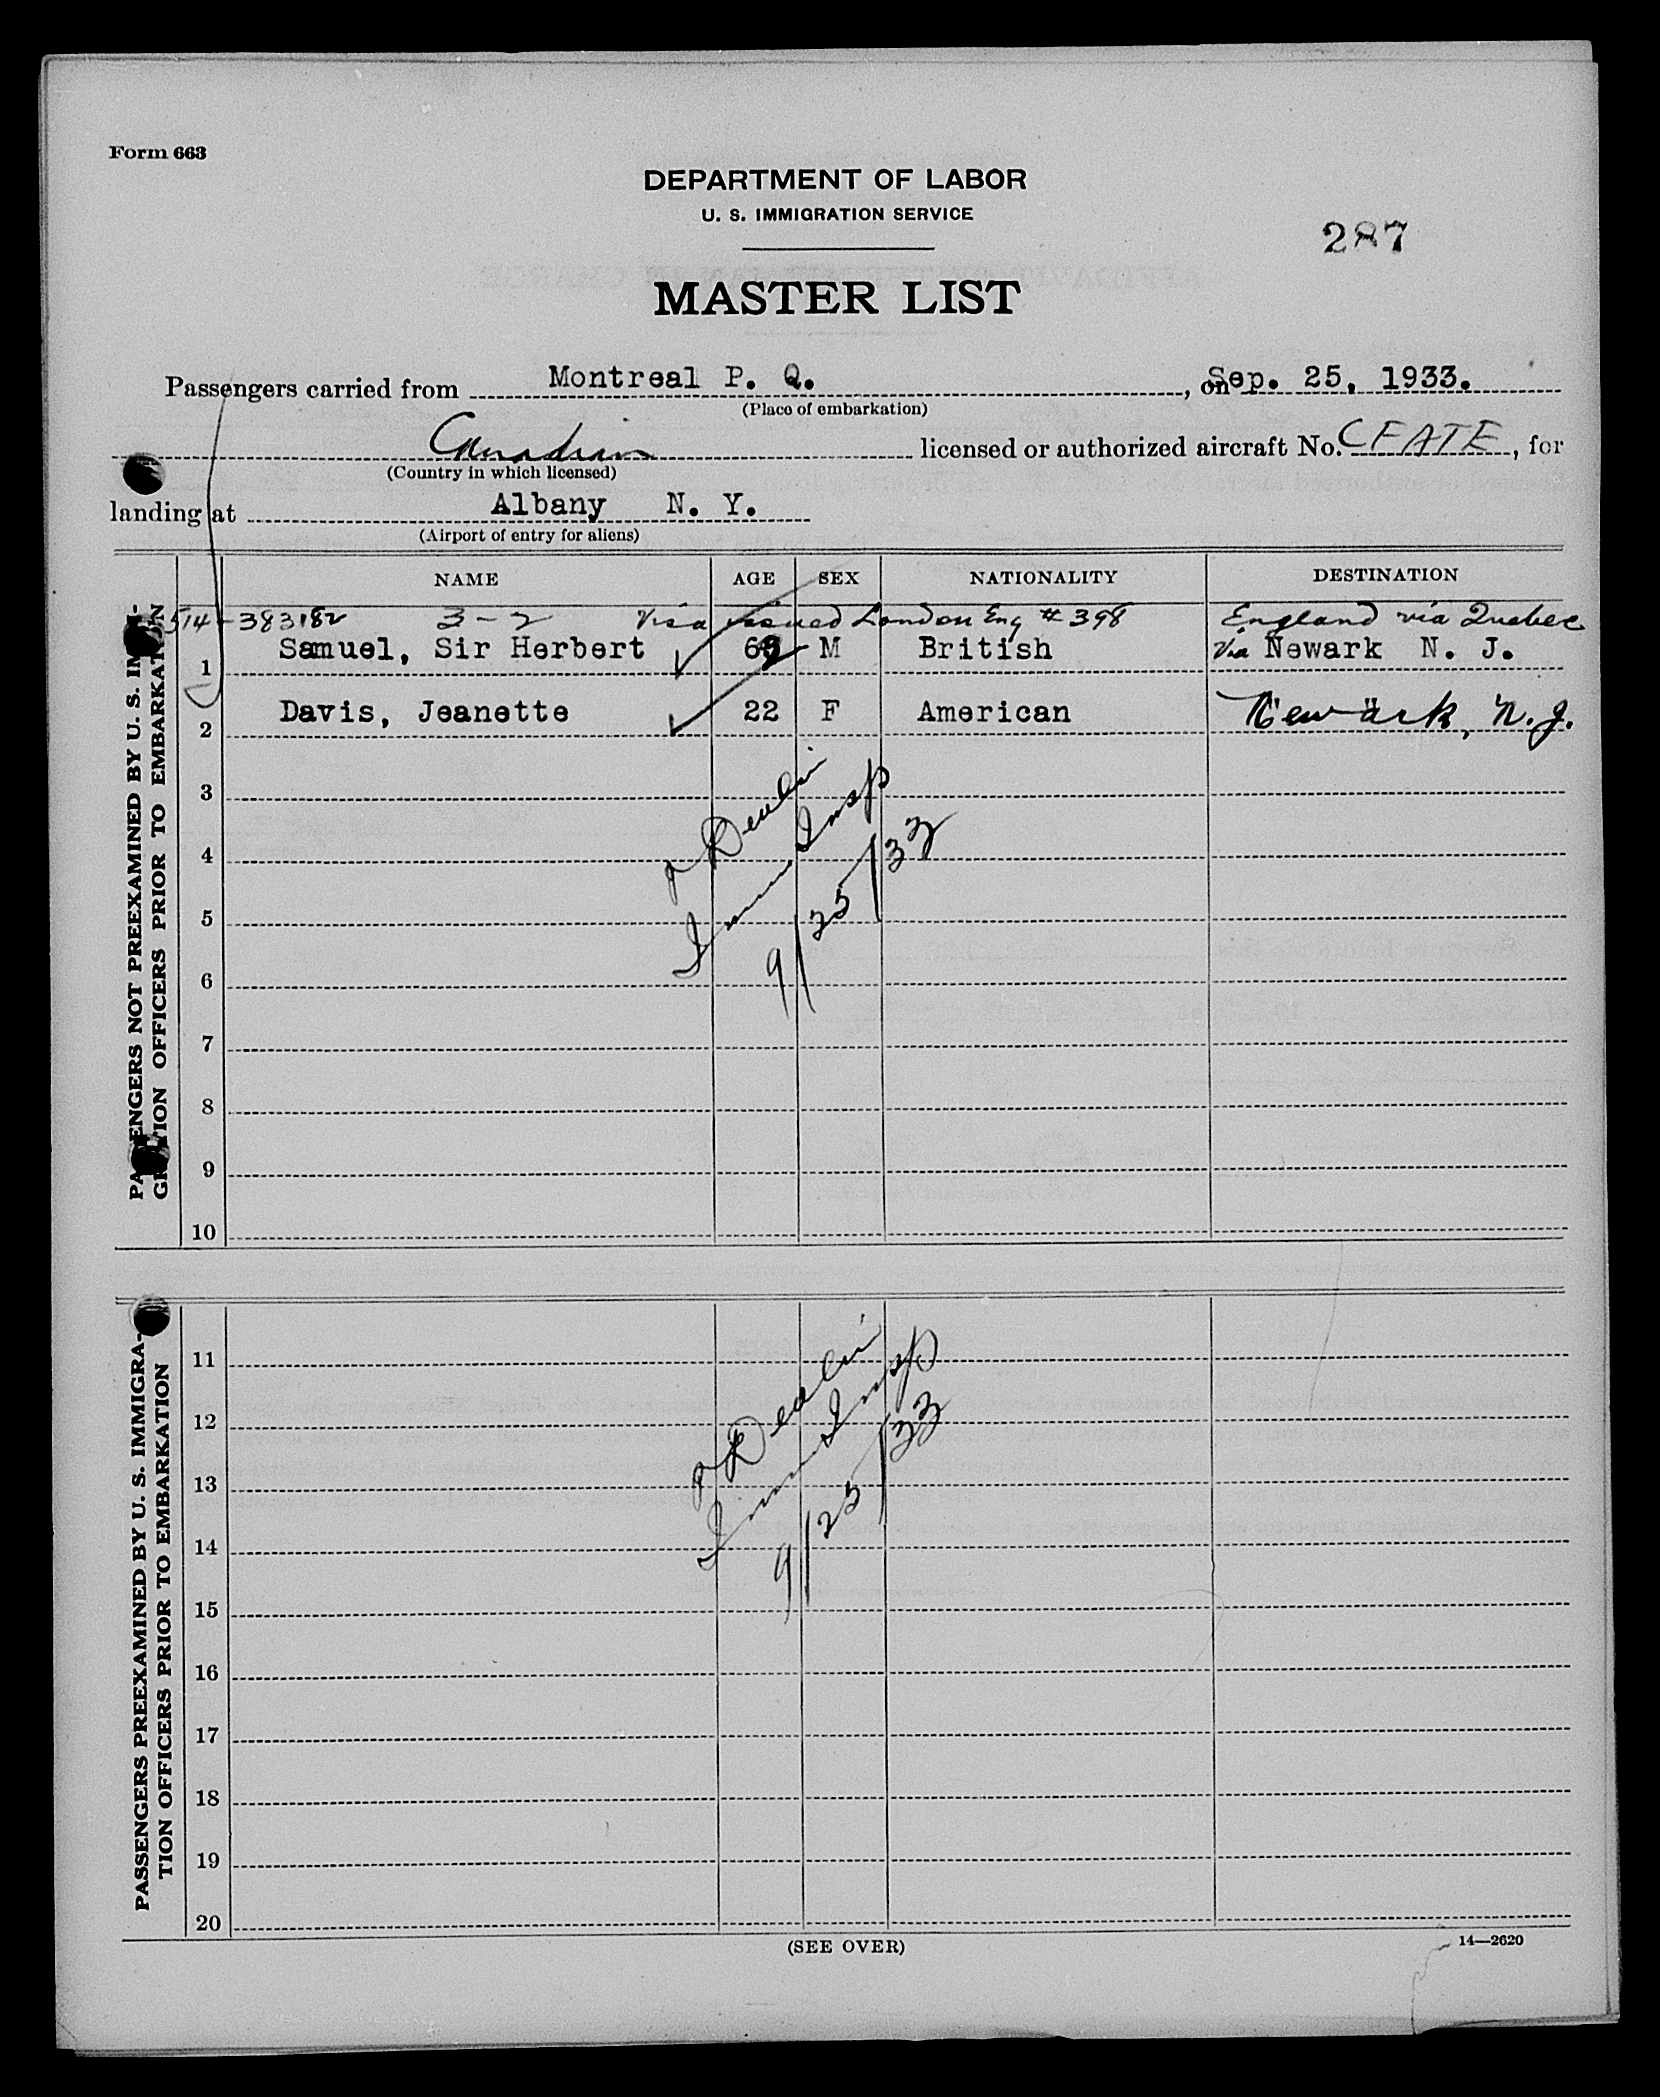 Form 663
DEPARTMENT OF LABOR
U. S. IMMIGRATION SERVICE
287
MASTER LIST
Passengers carried from Montreal P. Q., on Sep. 25, 1933.
(Place of embarkation)
Canadian licensed or authorized aircraft No. CFATE, for
(Country in which licensed)
landing at Albany N. Y.
(Airport of entry for aliens)
NAME AGE SEX NATIONALITY DESTINATION
383182 3-2 Visa issued London Eng #398 England via Quebec
1 Samuel, Sir Herbert M British via Newark N. J.
2 Davis, Jeanette 22 F American Newark, N. J.
3
4
5
6
7
8
9
10
Devlin
Imm Insp
9/25/33
PASSENGERS NOT PREEXAMINED BY U. S. IMMI-
GRATION OFFICERS PRIOR TO EMBARKATION
11
12
13
14
15
16
17
18
19
20
Devlin
Imm Insp
9/25/33
PASSENGERS PREEXAMINED BY U. S. IMMIGRA-
TION OFFICERS PRIOR TO EMBARKATION
(SEE OVER)
14—2620